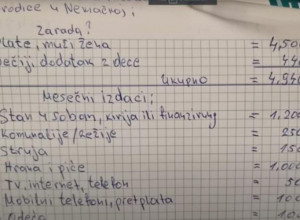 rodice u Nemačkoj
Zarada?
Plate, muž i žena = 4,500
ečiji dodatak 2 dece = 440
Ukupno = 4,940
Mesečni izdaci;
Stan 4 soban, kirija ili finanzirung = 1,200
Komunalije/Režije = 250
Struja = 150
Hrana i piće = 1,000
Tv, internet, telefon = 50
Mobilni telefoni, pretplata = 100